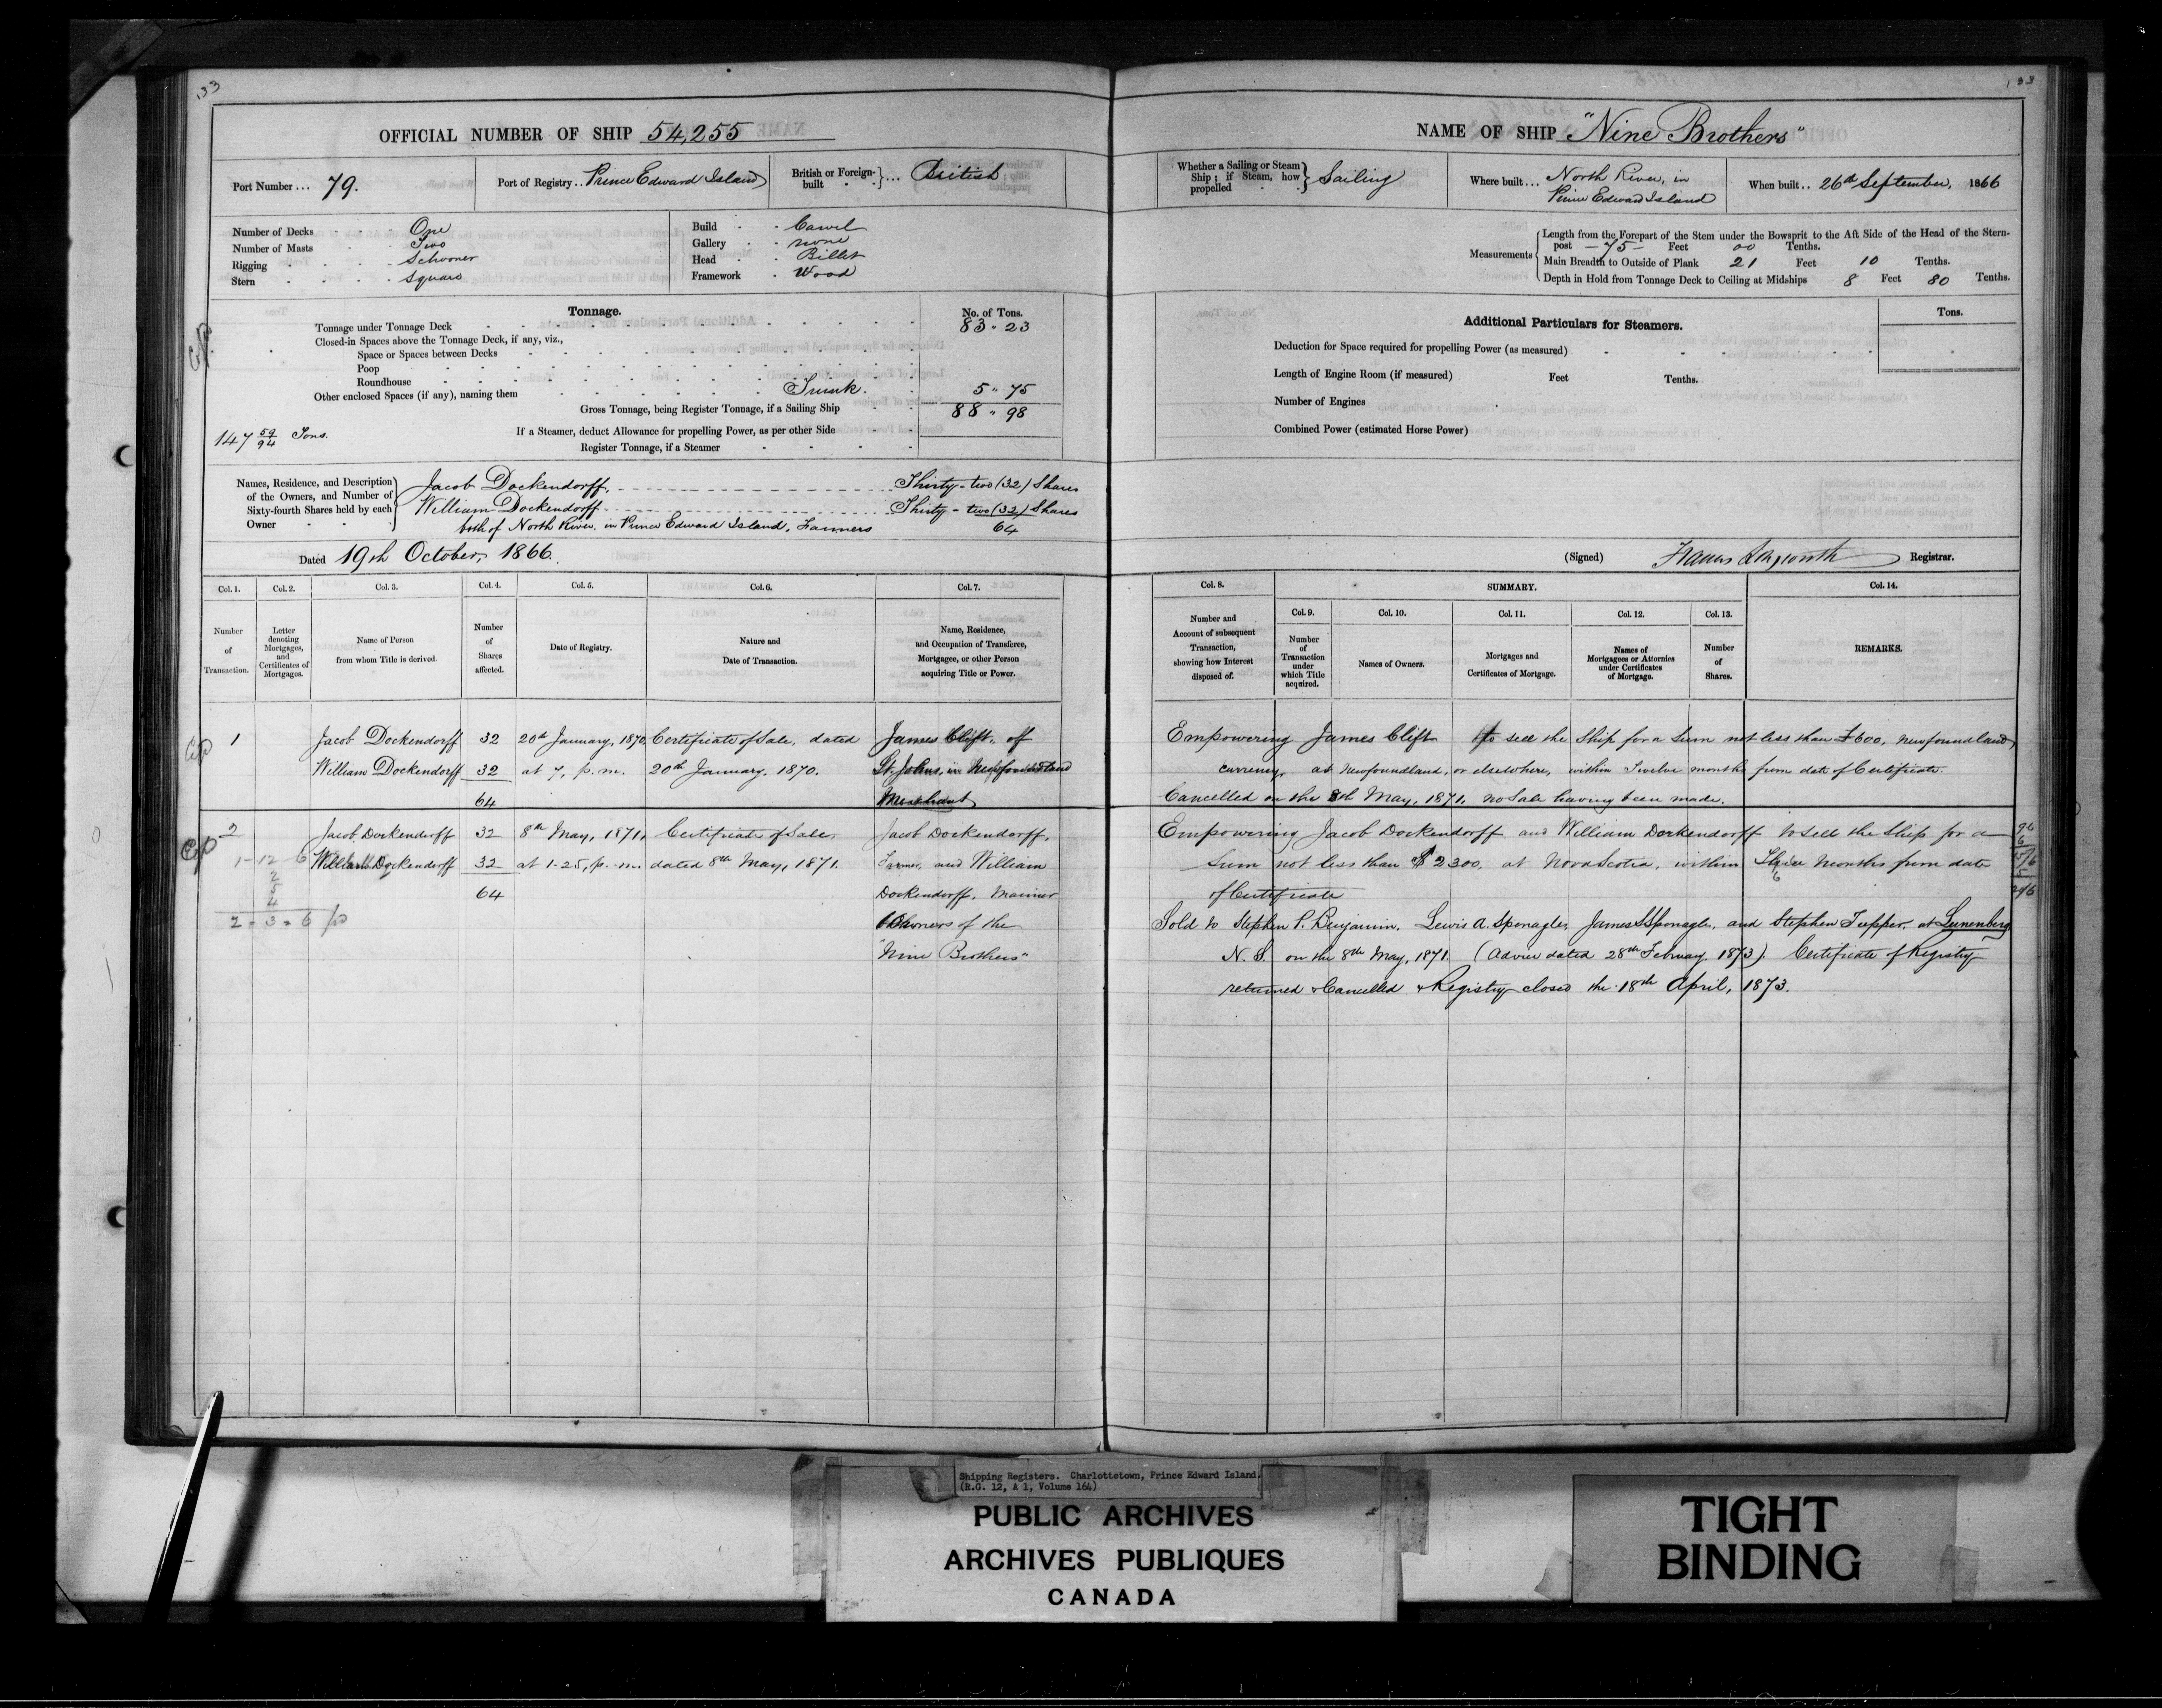 133
133
OFFICIAL NUMBER OF SHIP 54,255
Port Number ... 79.
Port of Registry .. Prince Edward Island
British or Foreign-built ... British
Number of Decks One
Number of Masts Two
Rigging Schooner
Stern Square
Build Carvel
Gallery none
Head Billet
Framework Wood
Tonnage.
No. of Tons.
Tonnage under Tonnage Deck 83 " 23
Closed-in Spaces above the Tonnage Deck, if any, viz.,
Space or Spaces between Decks
Poop
Roundhouse
Other enclosed Spaces (if any), naming them Trunk. 5 " 75
Gross Tonnage, being Register Tonnage, if a Sailing Ship 88 " 98
If a Steamer, deduct Allowance for propelling Power, as per other Side
147 59/94 Tons.
Register Tonnage, if a Steamer
Names, Residence, and Description of the Owners, and Number of Sixty-fourth Shares held by each Owner
Jacob Dockendorff, Thirty-two (32) Shares
William Dockendorff Thirty-two (32) Shares
both of North River, in Prince Edward Island, Farmers 64
Dated 19th October, 1866.
NAME OF SHIP "Nine Brothers"
Whether a Sailing or Steam Ship; if Steam, how propelled Sailing
Where built ... North River, in
Prince Edward Island
When built .. 26th September, 1866
Measurements
Length from the Forepart of the Stem under the Bowsprit to the Aft Side of the Head of the Stern-
post - 75 - Feet 00 Tenths.
Main Breadth to Outside of Plank 21 Feet 10 Tenths.
Depth in Hold from Tonnage Deck to Ceiling at Midships 8 Feet 80 Tenths.
Additional Particulars for Steamers.
Tons.
Deduction for Space required for propelling Power (as measured)
Length of Engine Room (if measured) Feet Tenths.
Number of Engines
Combined Power (estimated Horse Power)
(Signed) Registrar.
Col. 1. Col. 2. Col. 3. Col. 4. Col. 5. Col. 6. Col. 7.
Number of Transaction.
Letter denoting Mortgages, and Certificates of Mortgages.
Name of Person from whom Title is derived.
Number of Shares affected.
Date of Registry.
Nature and Date of Transaction.
Name, Residence, and Occupation of Transferee, Mortgagee, or other Person acquiring Title or Power.
Col. 8. SUMMARY. Col. 14.
Col. 9. Col. 10. Col. 11. Col. 12. Col. 13.
Number and Account of subsequent Transaction, showing how Interest disposed of.
Number of Transaction under which Title acquired.
Names of Owners.
Mortgages and Certificates of Mortgage.
Names of Mortgagees or Attornies under Certificates of Mortgage.
Number of Shares.
REMARKS.
1 Jacob Dockendorff 32 20th January, 1870, Certificate of Sale, dated James Clift, of
William Dockendorff 32 at 7, p.m. 20th January, 1870. St. Johns, in Newfoundland
64 Merchant
Empowering James Clift to sell the Ship for a Sum not less than £600, Newfoundland
currency, at Newfoundland, or elsewhere, within Twelve months from date of Certificate.
Cancelled on the 8th May, 1871, no Sale having been made.
2 Jacob Dockendorff 32 8th May, 1871, Certificate of Sale Jacob Dockendorff,
William Dockendorff 32 at 1-25, p.m. dated 8th May, 1871. Farmer, and William
64 Dockendorff, Mariner
Owners of the
"Nine Brothers"
1-12-6
2
5
4
2 - 3 - 6
Empowering Jacob Dockendorff and William Dockendorff to sell the Ship for a
Sum not less than $2300, at Nova Scotia, within Three Months from date
of Certificate
Sold to Stephen P. Benjamin, Lewis A. Sponagle, James S Sponagle, and Stephen Tupper, at Lunenberg
N.S. on the 8th May, 1871. (Advice dated 28th February 1873). Certificate of Registry
returned & Cancelled & Registry closed the 18th April, 1873.
Shipping Registers. Charlottetown, Prince Edward Island.
(R.G. 12, A 1, Volume 164)
PUBLIC ARCHIVES
ARCHIVES PUBLIQUES
CANADA
TIGHT
BINDING